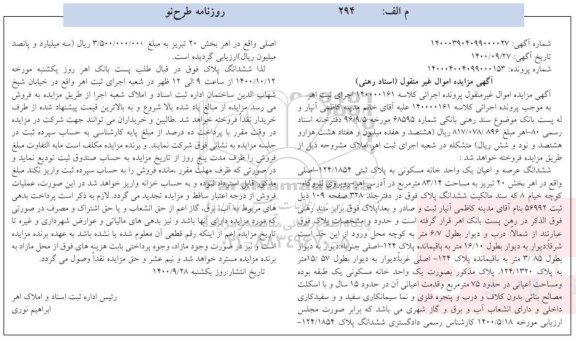 روزنامه طرح‌نو
م الف: ۲۹۴
شماره آگهی: ۱۴۰۰۰۳۹۰۴۰۹۹۰۰۰۰۲۷
تاریخ آگهی: ۱۴۰۰/۰۹/۲۷
شماره پرونده: ۱۴۰۰۰۴۰۰۴۰۹۹۰۰۰۱۵۳
آگهی مزایده اموال غیر منقول (اسناد رهنی)
آگهی مزایده اموال غیرمنقول پرونده اجرائی کلاسه ۱۴۰۰۰۰۱۶۱ اجرای ثبت اهر
به موجب پرونده اجرائی کلاسه ۱۴۰۰۰۰۱۶۱ علیه آقای خانم مدینه کاظمی آنیار و
له پست بانک موضوع سند رهنی بانکی شماره ۶۸۵۹۵ مورخه ۹۶/۹/۵ دفترخانه اسناد
رسمی ۸۰-اهر مبلغ ۸۱۷/۰۷۸/۸۹۶ ریال (هشتصد و هفده میلیون و هفتاد هشت هزارو
هشتصد و نود و شش ریال) متشکله در شعبه اجرای ثبت اهر املاک مشروحه ذیل از
طریق مزایده فروخته خواهد شد :
ششدانگ عرصه و اعیان یک واحد خانه مسکونی به پلاک ثبتی ۱۲۴/۱۸۵۴-اصلی
واقع در اهر بخش ۲۰ تبریز به مساحت ۸۳/۱۴ مترمربع در آدرس
کوچه خیام ۸ که سند مالکیت ششدانگ پلاک فوق در دفترجلد ۳۲۸ صفحه ۱۰۹ ذیل
ثبت ۵۶۹۹۲ بنام آقای مدینه کاظمی آنیار ثبت و صادر و بعدا پلاک فوق برابر سند رهنی
فوق الذکر در رهن پست بانک اهر قرار گرفته است و حدود و مشخصات پلاک فوق
عبارتند از شمالا: درب و دیوار بطول ۶/۷ متر به کوچه محل ورود از این حد است
شرقا:دیوار به دیوار بطول ۱۶/۱۰ متر به باقیمانده پلاک ۱۲۴-اصلی جنوبا:دیوار به دیوار
بطول ۳/۸۵ متر به باقیمانده پلاک ۱۲۴- اصلی غربا:دیوار به دیوار بطول ۱۵/۵۷متر
به پلاک ۱۲۴/۱۳۲۰. پلاک مذکور بصورت یک واحد خانه مسکونی یک طبقه بوده
ومساحت اعیانی در حدود ۷۵ مترمربع وقدمت اعیانی آن در حدود ۱۵ سال و با اسکلت
مصالح بنائی بدون کلاف و درب و پنجره فلزی و نما سیمانکاری سفید و و سفیدکاری
داخلی و دارای انشعاب آب و برق و گاز شهری می باشد که برابر صورت مجلس
ارزیابی مورخه ۱۴۰۰/۵/۱۸ کارشناس رسمی دادگستری ششدانگ پلاک ۱۲۴/۱۸۵۴-
اصلی واقع در اهر بخش ۲۰ تبریز به مبلغ ۳/۵۰۰/۰۰۰/۰۰۰ ریال (سه میلیارد و پانصد
میلیون ریال)ارزیابی گردیده است.
لذا ششدانگ پلاک فوق در قبال طلب پست بانک اهر روز یکشنبه مورخه
۱۴۰۰/۱۰/۱۲ از ساعت ۹ الی ۱۲ ظهر در شعبه اجرای ثبت اهر واقع در خیابان شیخ
شهاب الدین ساختمان اداره ثبت اسناد و املاک شعبه اجرا از طریق مزایده به فروش
می رسد مزایده از مبالغ یاد شده بالا شروع و به بالاترین قیمت پیشنهاد شده از طرف
خریدار نقدا فروخته خواهد شد .طالبین و خریداران می توانند جهت شرکت در مزایده
در وقت مقرر با پرداخت ده درصد از مبلغ پایه کارشناسی به حساب سپرده ثبت در
جلسه مزایده به نشانی فوق شرکت نمایند. و برنده مزایده مکلف است مابه التفاوت مبلغ
فروش را ظرف مدت پنج روز از تاریخ مزایده به حساب صندوق ثبت تودیع نماید و
در صورتی که ظرف مهلت مقرر مانده فروش را به حساب سپرده ثبت واریز نکند مبلغ
مذکور قابل استرداد نبوده و به حساب خزانه واریز خواهد شد در این صورت، عملیات
فروش از درجه اعتبار ساقط و مزایده تجدید می گردد. لازم به ذکر است پرداخت بدهی
های مربوط به آب، برق، گاز اعم از حق انشعاب و یا حق اشتراک و مصرف در صورتی
که مورد مزایده دارای آنها باشد و نیز بدهی های مالیاتی و عوارض شهرداری و غیره تا
تاریخ مزایده اعم از اینکه رقم قطعی آن معلوم شده یا نشده باشد به عهده برنده مزایده
است و نیز در صورت وجود مازاد، وجوه پرداختی بابت هزینه های فوق از محل مازاد به
برنده مزایده مسترد خواهد شد و نیم عشر و حق مزایده نقدا وصول می گردد.
تاریخ انتشار:روز یکشنبه ۱۴۰۰/۹/۲۸
رئیس اداره ثبت اسناد و املاک اهر
ابراهیم نوری